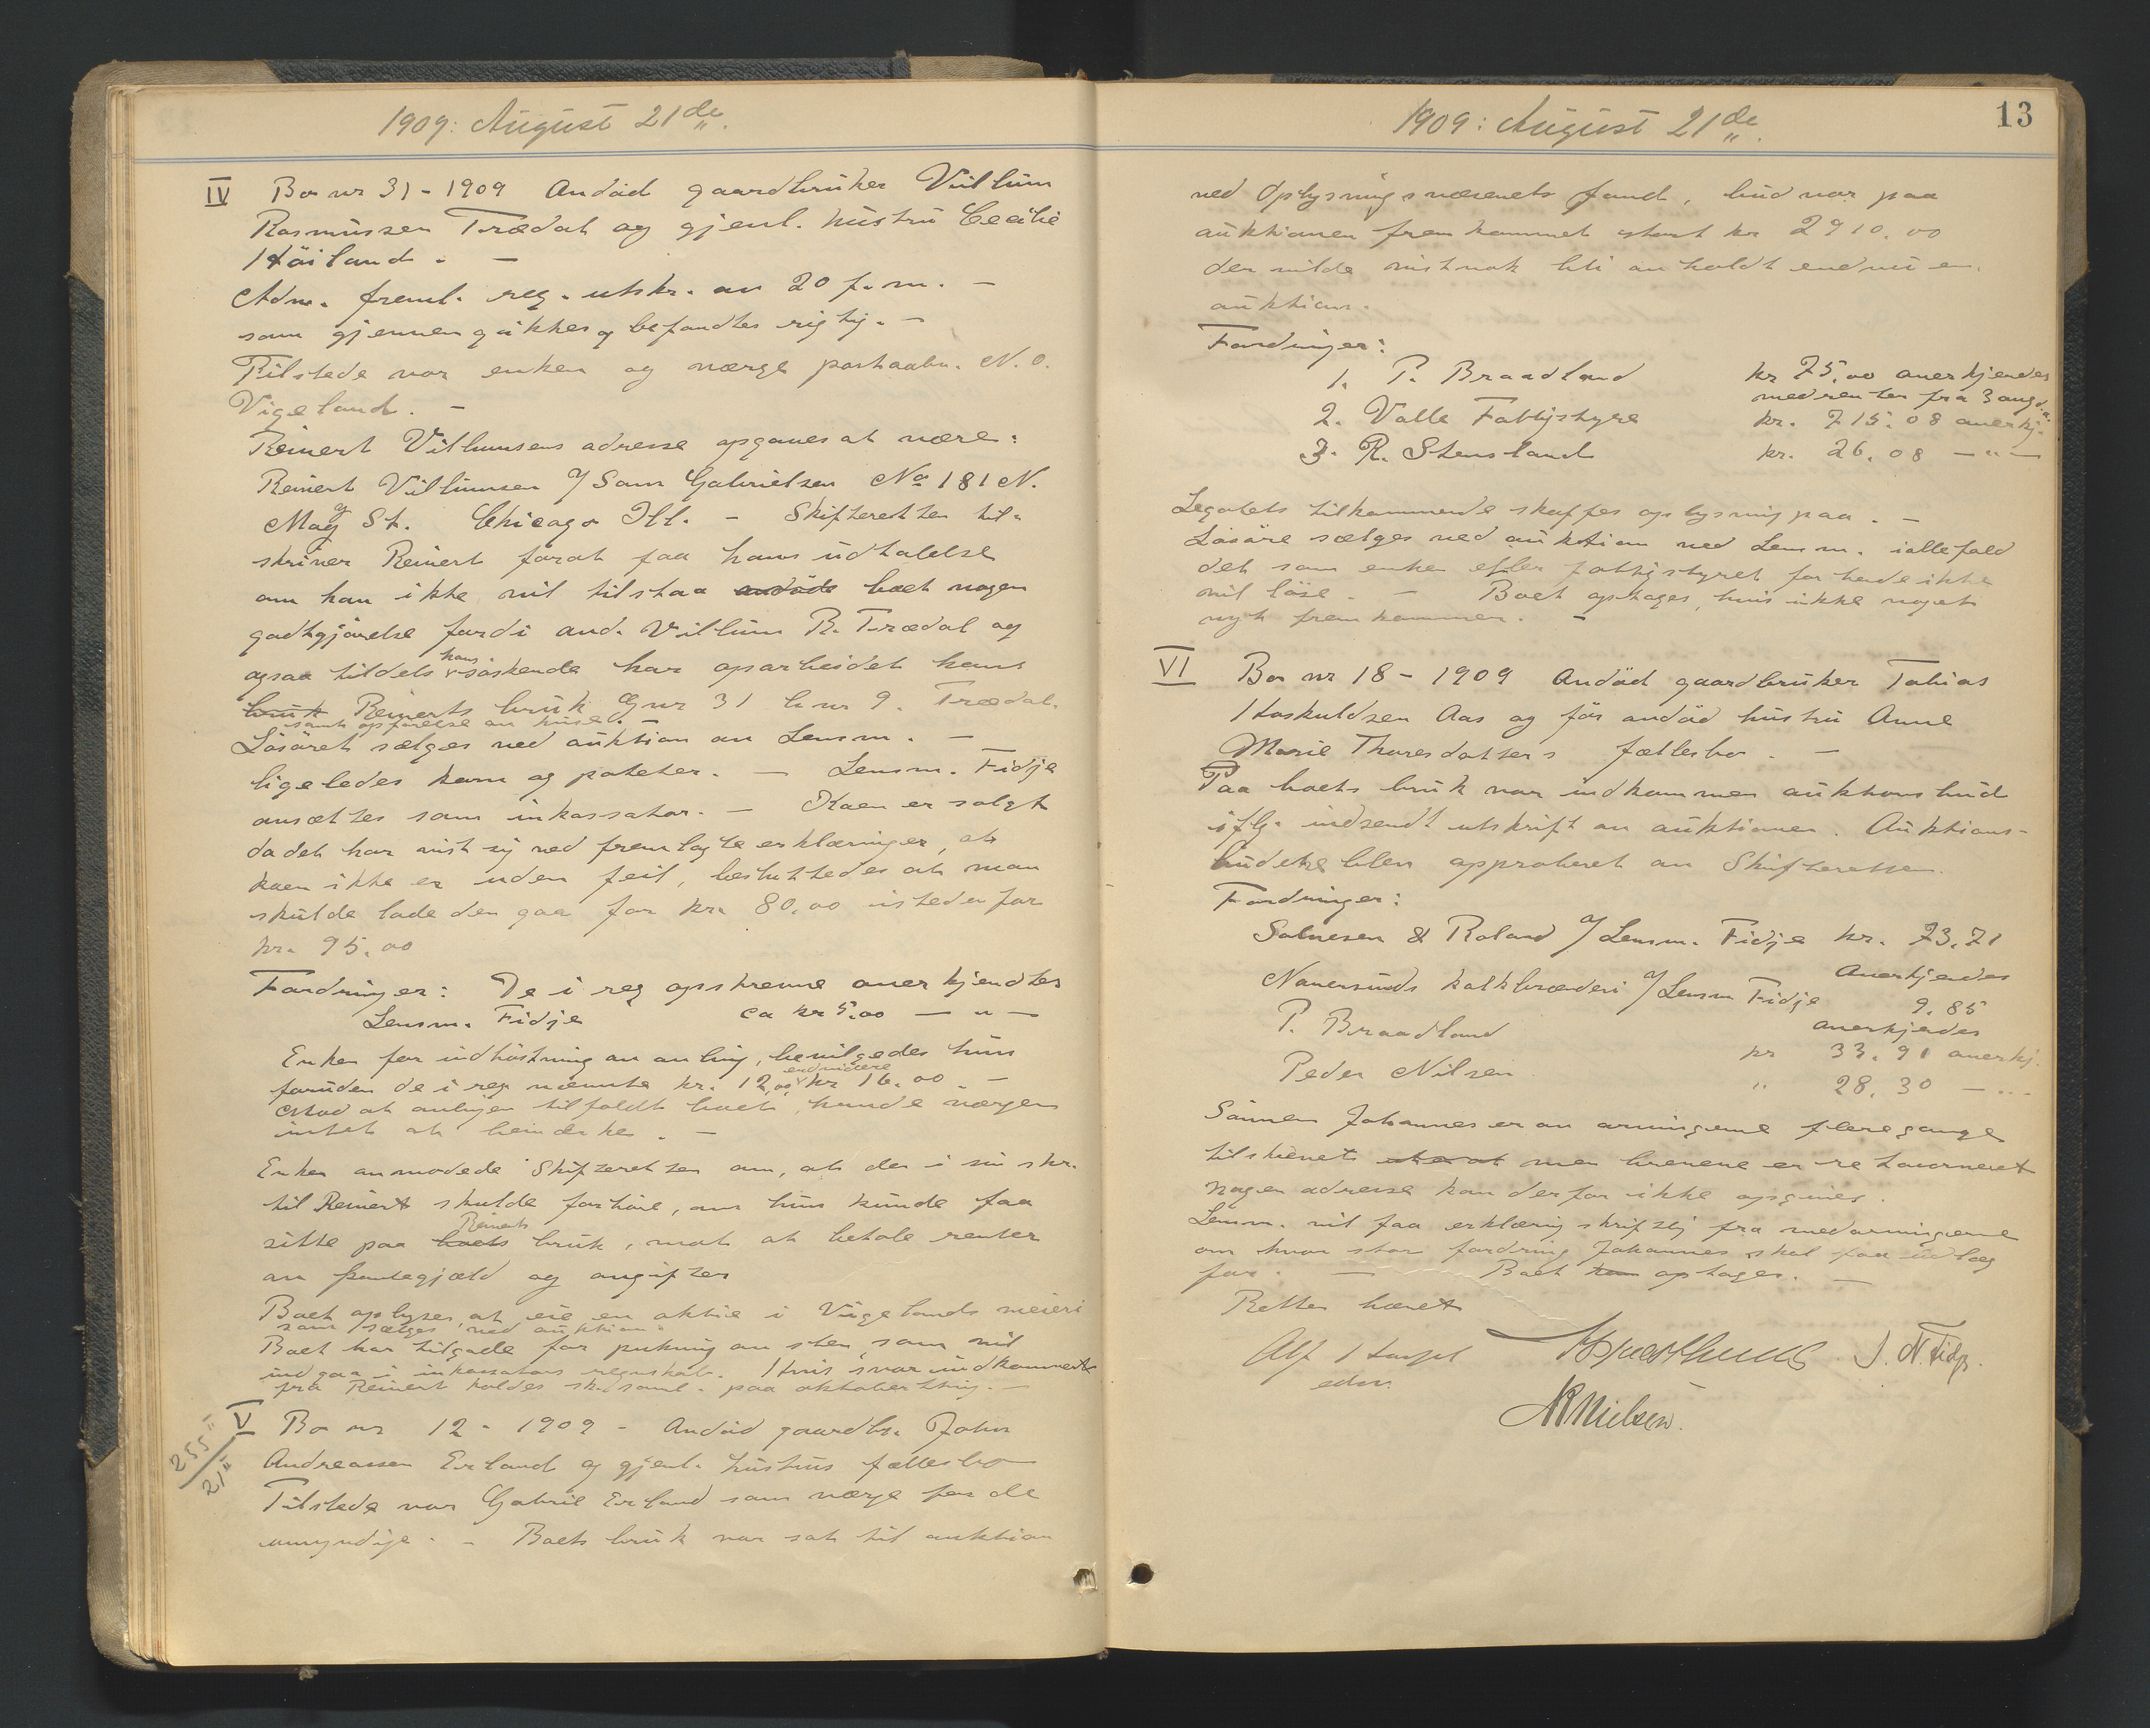 1909: August 21de
IV Bo nr 31 - 1909 Andöd gaardbruker Villum
Rasmussen Trædal og gjenl. hustru Cecilie
Höiland. -
Adm. freml. reg. utskr. av 20 f. m. -
som gjennemgikkes og befandtes rigtig. -
Tilstede var enken og værge postaabn. N. O.
Vigeland. -
Reinert Villumsens adresse opgaves at være:
Reinert Villumsen % Sam Gabrielsen No 181 N.
May St. Chicago Ill. - Skifteretten til-
skriver Reinert forat faa hans udtalelse
om han ikke vil tilstaa boet nogen
godtgjörelse fordi avd. Villum R. Trædal og
ogsaa tildels hans söskende har oparbeidet hans
bruk Reinerts bruk Gnr 31 bnr 9. Trædal.
samt opförelse av huse. -
Lösöret sælges ved auktion av Lensm. -
ligeledes korn og poteter. - Lensm. Fidje
ansættes som inkassator. - Koen er solgt
da det har vist sig ved fremlagte erklæringer, at
koen ikke er uden feil, besluttedes at man
skulde lade den gaa for kr. 80,00 istedenfor
kr. 95,00
Fordringer: De i reg opskrevne anerkjendtes
Lensm. Fidje ca kr 5.00 - " -
Enken for indhöstning av avling, bevilgedes hun
foruden de i reg nævnte kr. 12,00 endvidere kr 16.00. -
Mod at avlingen tilfaldt boet, havde værgen
intet at bemerke. -
Enken anmodede Skifteretten om, at den i sin skr.
til Reinert skulde forhöre, om hun kunde faa
sitte paa boets Reinerts bruk, mot at betale renter
av pantegjæld og avgifter
Boet oplyses, at eie en aktie i Vigelands meieri
som sælges ved auktion
Boet har tilgode for pukning av sten, som vil
indgaa i inkassators regnskab. Hvis svar indkommet
fra Reinert holdes sk.saml. paa oktoberthing. -
255"/21"
V Bo nr 12 - 1909 - Andöd gaardbr. John
Andreassen Erland og gjenl. hustrus fællesbo
Tilstede var Gabriel Erland som værge for de
umyndige. - Boets bruk var sat til auktion
1909: August 21de
13
ved Oplysningsvæsenets fond, bud var paa
auktionen fremkommet stort kr 2910.00
der vilde vistnok bli anholdt endnu en
auktion.
Fordringer:
1. P. Braadland kr 75,00 anerkjendes
med renter fra 3 aug d. a.
2. Valle Fattigstyre kr. 715.08 anerkj.
3. R. Stensland kr. 26.08 - " -
Legatets tilkommende skaffes oplysning paa. -
Lösöre sælges ved auktion ved Lensm. ialfald
det som enken eller fattigstyret for hende ikke
vil löse. - Boet optages, hvis ikke noget
nyt fremkommer. -
VI Bo nr 18 - 1909 Andöd gaardbruker Tobias
Hoskuldsen Aas og för andöd hustru Anne
Marie Thoresdatters fællesbo. -
Paa boets bruk var indkommen auktionsbud
iflg. indsendt utskrift av auktionen. Auktions-
budene blev approberet av Skifteretten.
Fordringer:
Salvesen & Roland % Lensm. Fidje kr. 73.71
Anerkjendes
Naversunds kalkbrænderi % Lensm Fidje 9.85
anerkjendes
P. Braadland kr 33.91 anerkj.
Peder Nilsen " 28.30 - " -
Sönnen Johannes er av arvingerne flere gange
tilskrevet men brevene er retourneret
Nogen adresse kan derfor ikke opgives.
Lensm. vil faa erklæring skriftlig fra medarvingerne
om hvor stor fordring Johannes skal faa udlæg
for. - Boet optages. -
Retten hævet
J. N. Fidje.
edsv.
NNielsen.